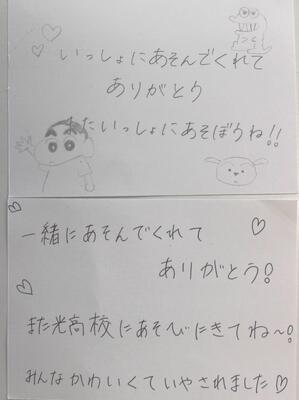 いっしょにあそんでくれて
ありがとう
またいっしょにあそぼうね!!
一緒にあそんでくれて
ありがとう!
また光高校にあそびにきてね〜!
みんなかわいくていやされました♡